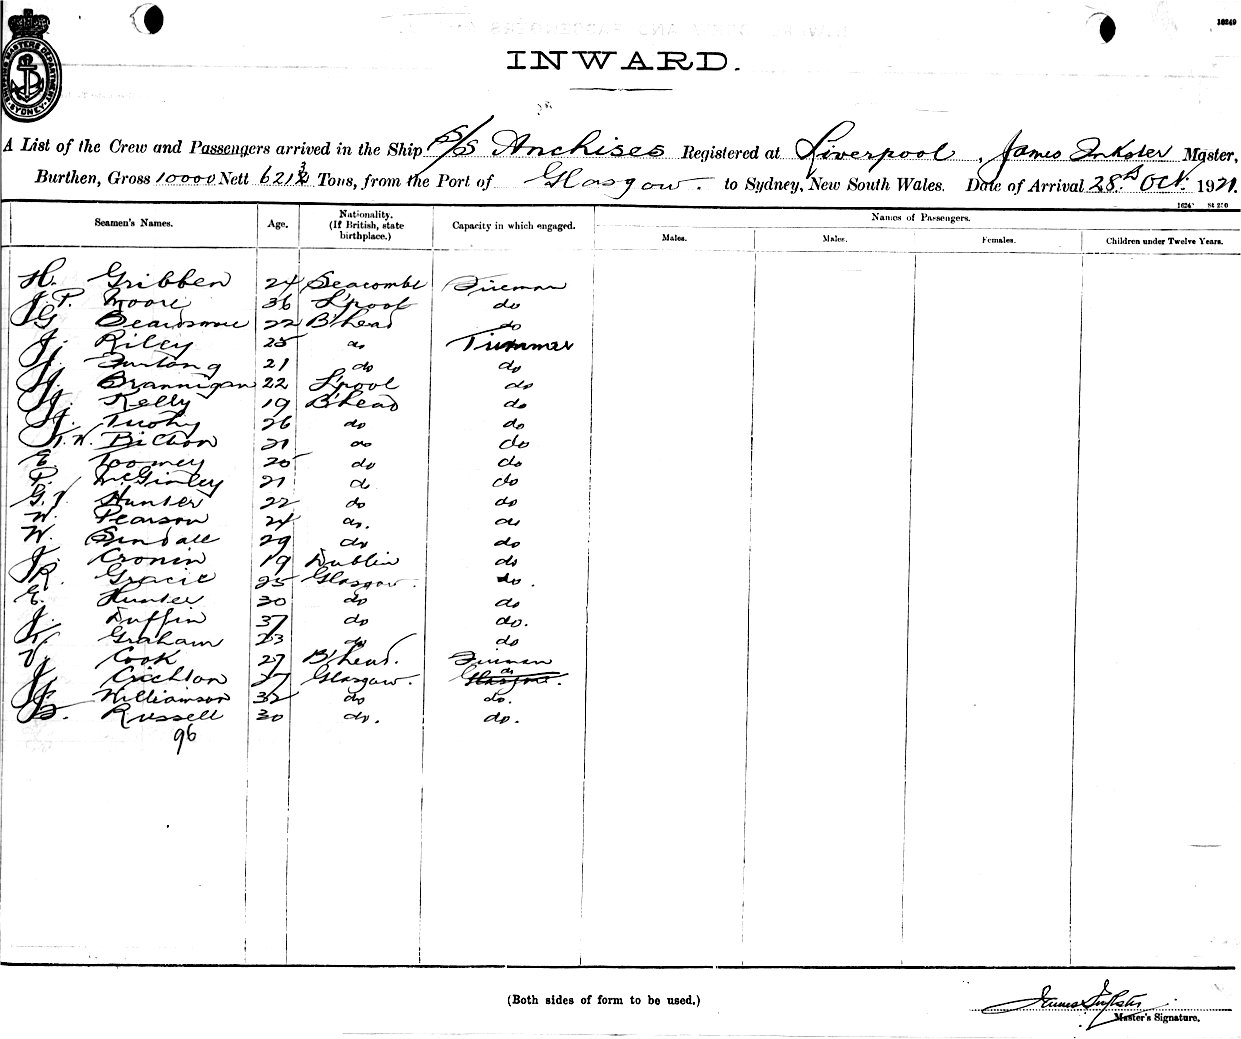 16249
SHIPPING MASTERS DEPARTMENT SYDNEY
INWARD.
A List of the Crew and Passengers arrived in the Ship S/S Anchises Registered at Liverpool, James Inkster Master,
Burthen, Gross 10000 Nett Tons, from the Port of Glasgow. to Sydney, New South Wales. Date of Arrival 28th Oct. 1921.
Seamen's Names. Age. Nationality. (If British, state birthplace.) Capacity in which engaged. Names of Passengers.
Males. Males. Females. Children under Twelve Years.
H. Gribben 24 Seacombe Fireman
J. P. Moore 36 L'pool do
G Beardsmore 22 B'head do
J. Riley 25 do Trimmer
J. Furlong 21 do do
H. Brannigan 22 L'pool do
J. Kelly 19 B'head do
J. Tuohy 26 do do
W. 21 do do
E. Toomey 20 do do
P. McGinley 21 do do
G. J. Hunter 22 do do
W. Pearson 24 do. do
W. 29 do do
J. Cronin 19 Dublin do
R. Gracie 25 Glasgow. do.
E. Hunter 30 do do
J. Duffin 37 do do.
Graham 23 do do
V. Cook 27 B'head. Fireman
J Crichton 37 Glasgow. do Glasgow.
J. Williamson 32 do do.
B. Russell 30 do. do.
96
(Both sides of form to be used.)
James Inkster
Master's Signature.